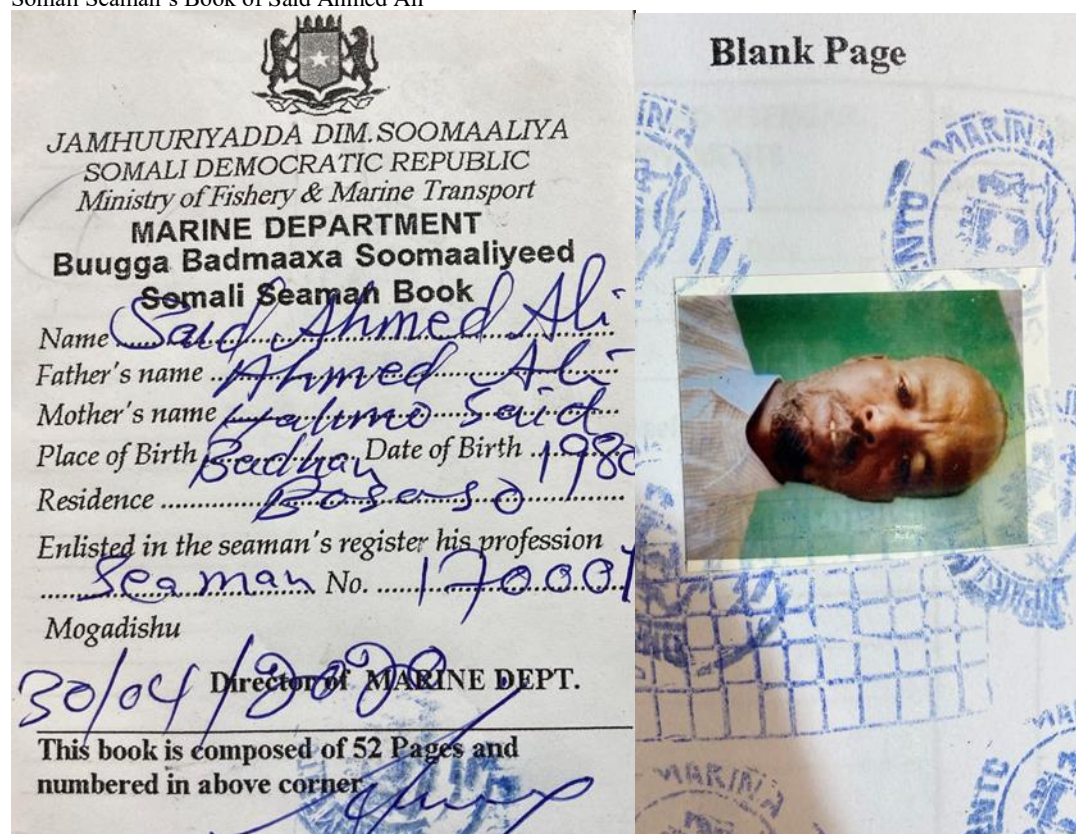 Somali Seaman's Book of Said Ahmed Ali
JAMHUURIYADDA DIM.SOOMAALIYA
SOMALI DEMOCRATIC REPUBLIC
Ministry of Fishery & Marine Transport
MARINE DEPARTMENT
Buugga Badmaaxa Soomaaliyeed
Somali Seaman Book
Name Said Ahmed Ali
Father's name Ahmed Ali
Mother's name Halimo Said
Place of Birth Badhan Date of Birth 1980
Residence Bosaso
Enlisted in the seaman's register his profession
Seaman No. 170001
Mogadishu
30/04/2020
Director of MARINE DEPT.
This book is composed of 52 Pages and
numbered in above corner
Blank Page
MARINA
MARINA